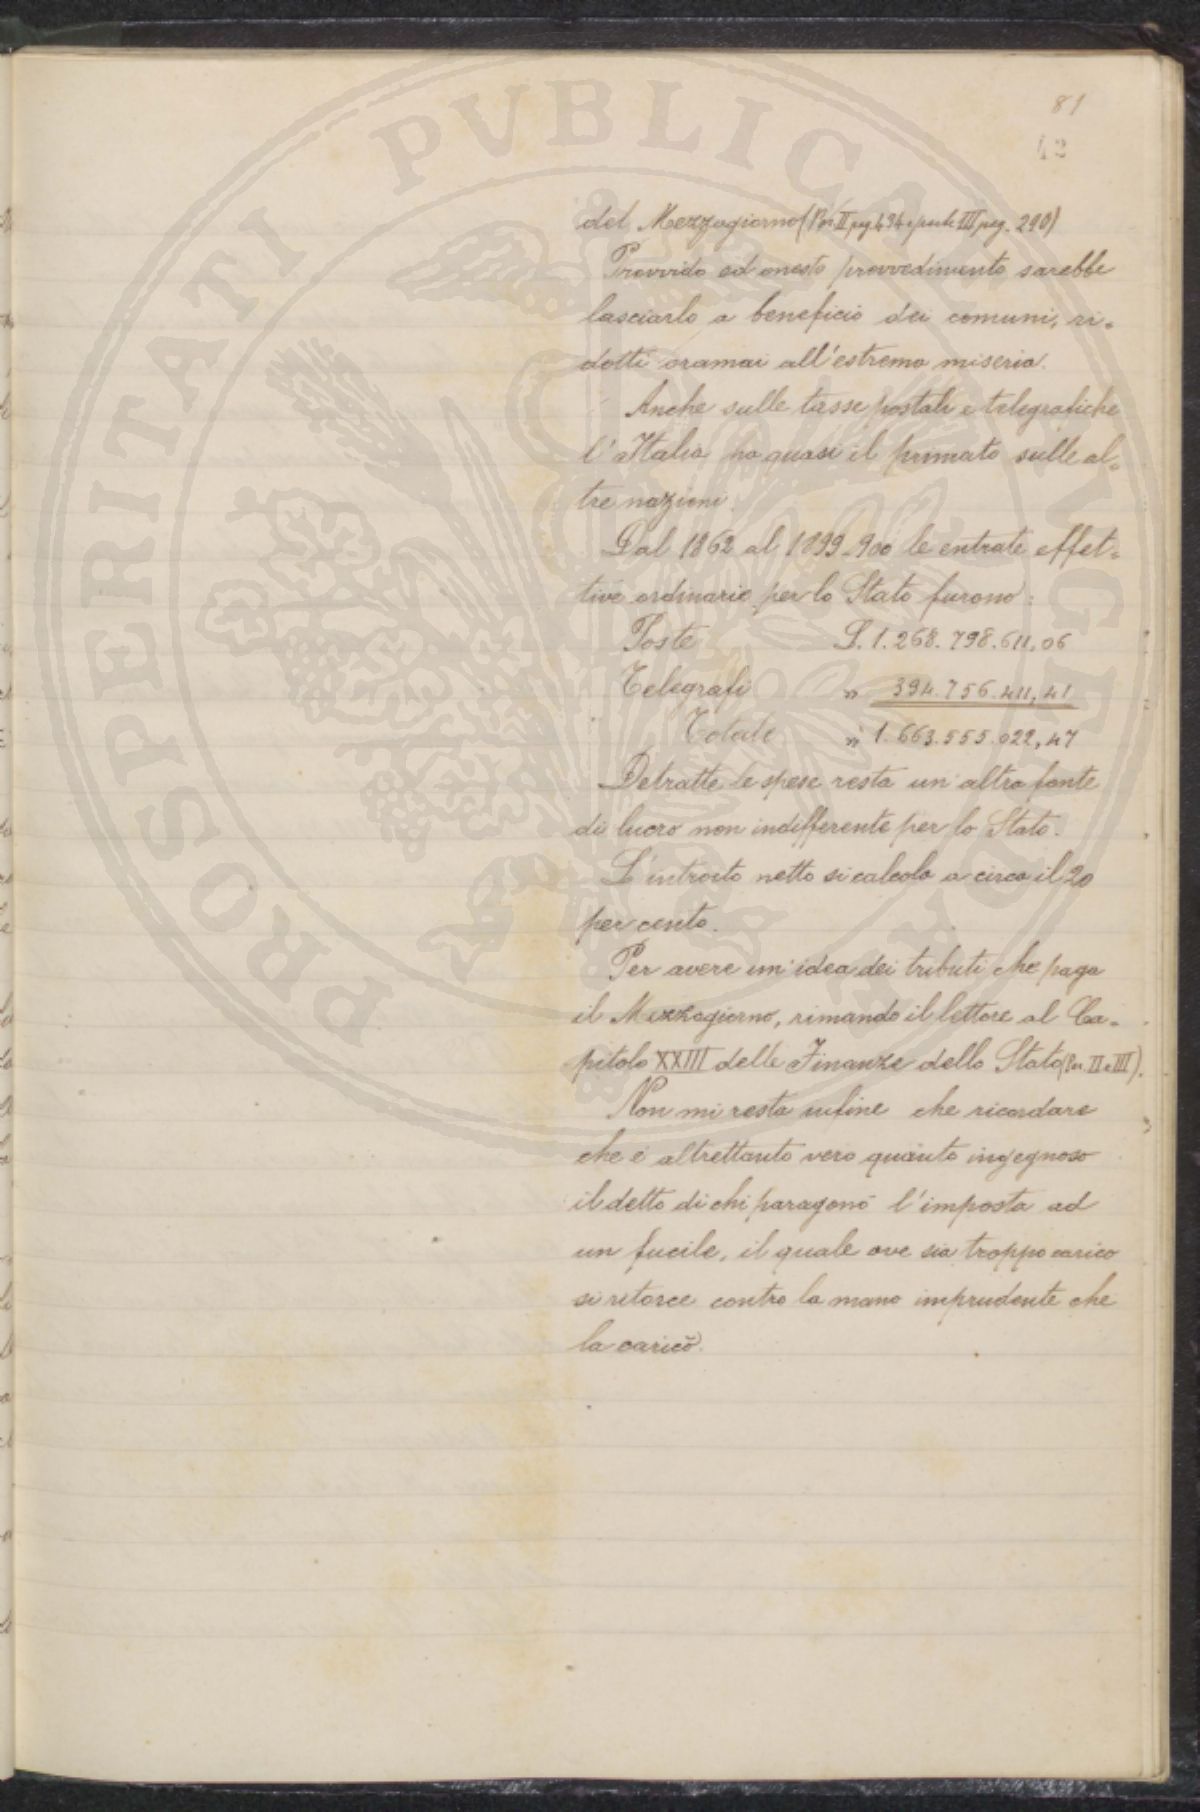 81
42
del Mezzogiorno (Par. II pag. 494 e parte III pag. 290)
Provvido ed onesto provvedimento sarebbe
lasciarlo a beneficio dei comuni, ri=
dotti oramai all'estrema miseria.
Anche sulle tasse postali e telegrafiche
l'Italia ha quasi il primato sulle al=
tre nazioni.
Dal 1862 al 1899-900 le entrate effet=
tive ordinarie per lo Stato furono:
Poste L. 1.268.798.611,06
Telegrafi » 394.756.411,41
Totale » 1.663.555.022,47
Detratte le spese resta un'altra fonte
di lucro non indifferente per lo Stato.
L'introito netto si calcola a circa il 20
per cento.
Per avere un'idea dei tributi che paga
il Mezzogiorno, rimando il lettore al Ca=
pitolo XXIII delle Finanze dello Stato (Par. II e III).
Non mi resta infine che ricordare
che è altrettanto vero quanto ingegnoso
il detto di chi paragonò l'imposta ad
un fucile, il quale ove sia troppo carico
si ritorce contro la mano imprudente che
la caricò.
PROSPERITATI PVBLICAE AVGENDAE